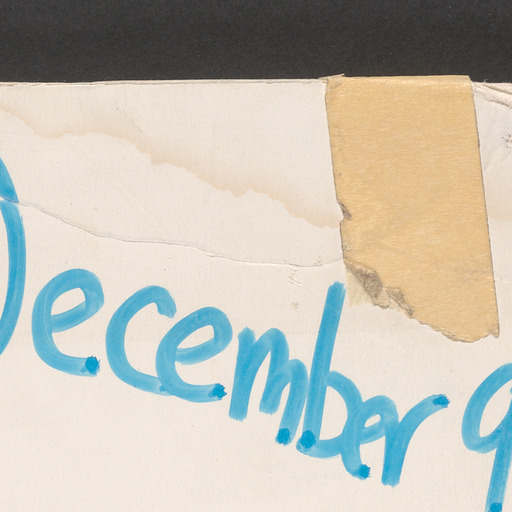 December 9